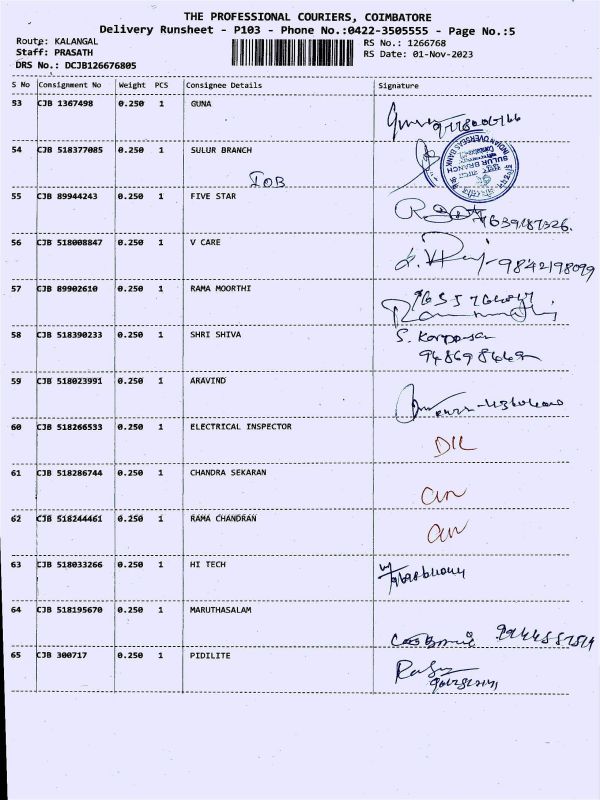 THE PROFESSIONAL COURIERS, COIMBATORE
Delivery Runsheet - P103 - Phone No.:0422-3505555 - Page No.:5
Route: KALANGAL RS No.: 1266768
Staff: PRASATH RS Date: 01-Nov-2023
DRS No.: DCJB126676805
S No Consignment No Weight PCS Consignee Details Signature
53 CJB 1367498 0.250 1 GUNA
54 CJB 518377085 0.250 1 SULUR BRANCH
IOB
INDIAN OVERSEAS BANK
SULUR BRANCH
55 CJB 89944243 0.250 1 FIVE STAR
56 CJB 518008847 0.250 1 V CARE
9842198099
57 CJB 89902610 0.250 1 RAMA MOORTHI
58 CJB 518390233 0.250 1 SHRI SHIVA
59 CJB 518023991 0.250 1 ARAVIND
60 CJB 518266533 0.250 1 ELECTRICAL INSPECTOR
61 CJB 518286744 0.250 1 CHANDRA SEKARAN
62 CJB 518244461 0.250 1 RAMA CHANDRAN
63 CJB 518033266 0.250 1 HI TECH
64 CJB 518195670 0.250 1 MARUTHASALAM
65 CJB 300717 0.250 1 PIDILITE